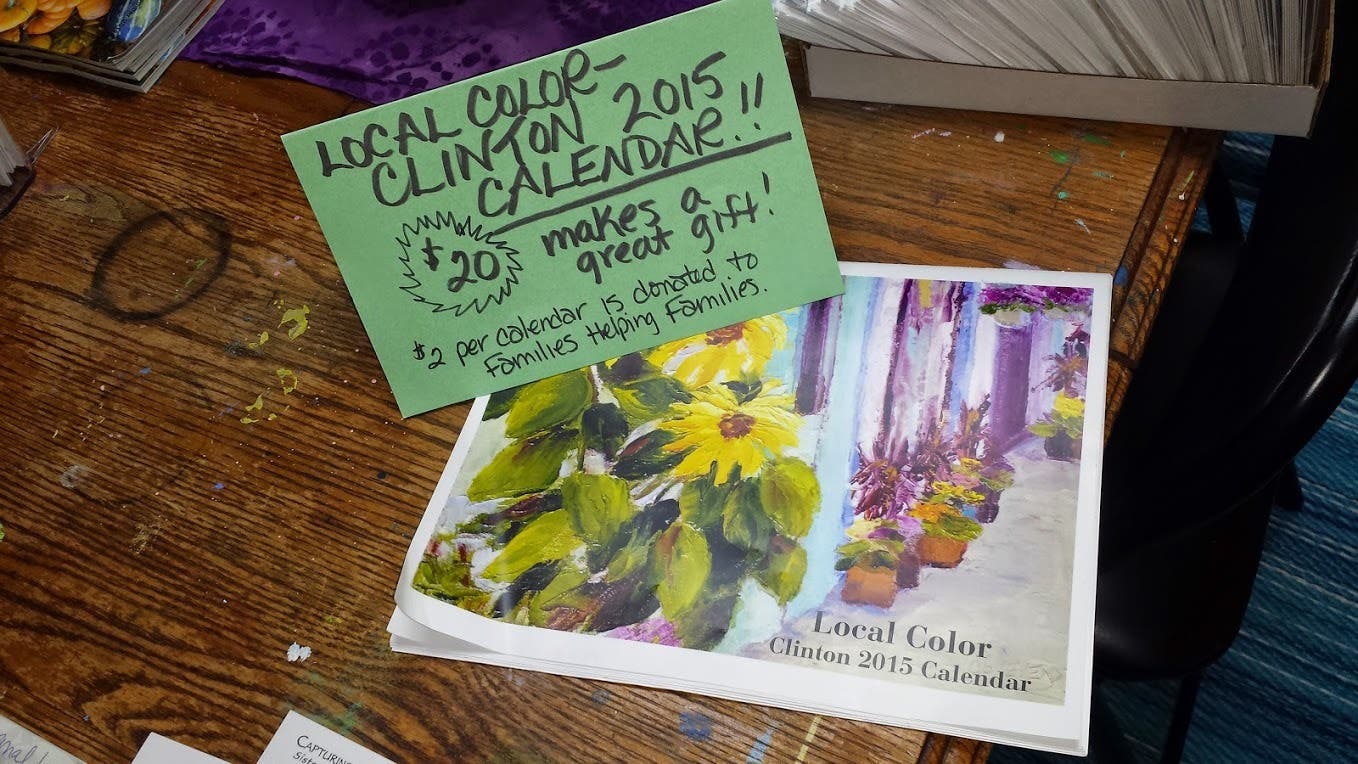 LOCAL COLOR-
CLINTON 2015
CALENDAR!!
$20
makes a
great gift!
$2 per calendar is donated to
Families Helping Families.
Local Color
Clinton 2015 Calendar
CAPTURIN